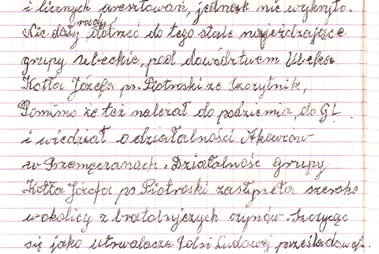 i licznych aresztowań, jednak nic wykryto.
Nie dały rady dotrzeć do tego stale najeżdzające
grupy ubeckie, pod dowództwem Ubeka
Kotła Józefa ps. Piotroski ze Skorytnik,
Pomimo że też należał do podziemia, do GL
i wiedział o działalności Akowców
w Przemęczanach. Działalność grupy
Kotła Józefa ps Piotroski zastyneła szeroko
w okolicy z bratobujczych czynów. Szczycąc
się jako utrwalacze Polsi Ludowej prześladował